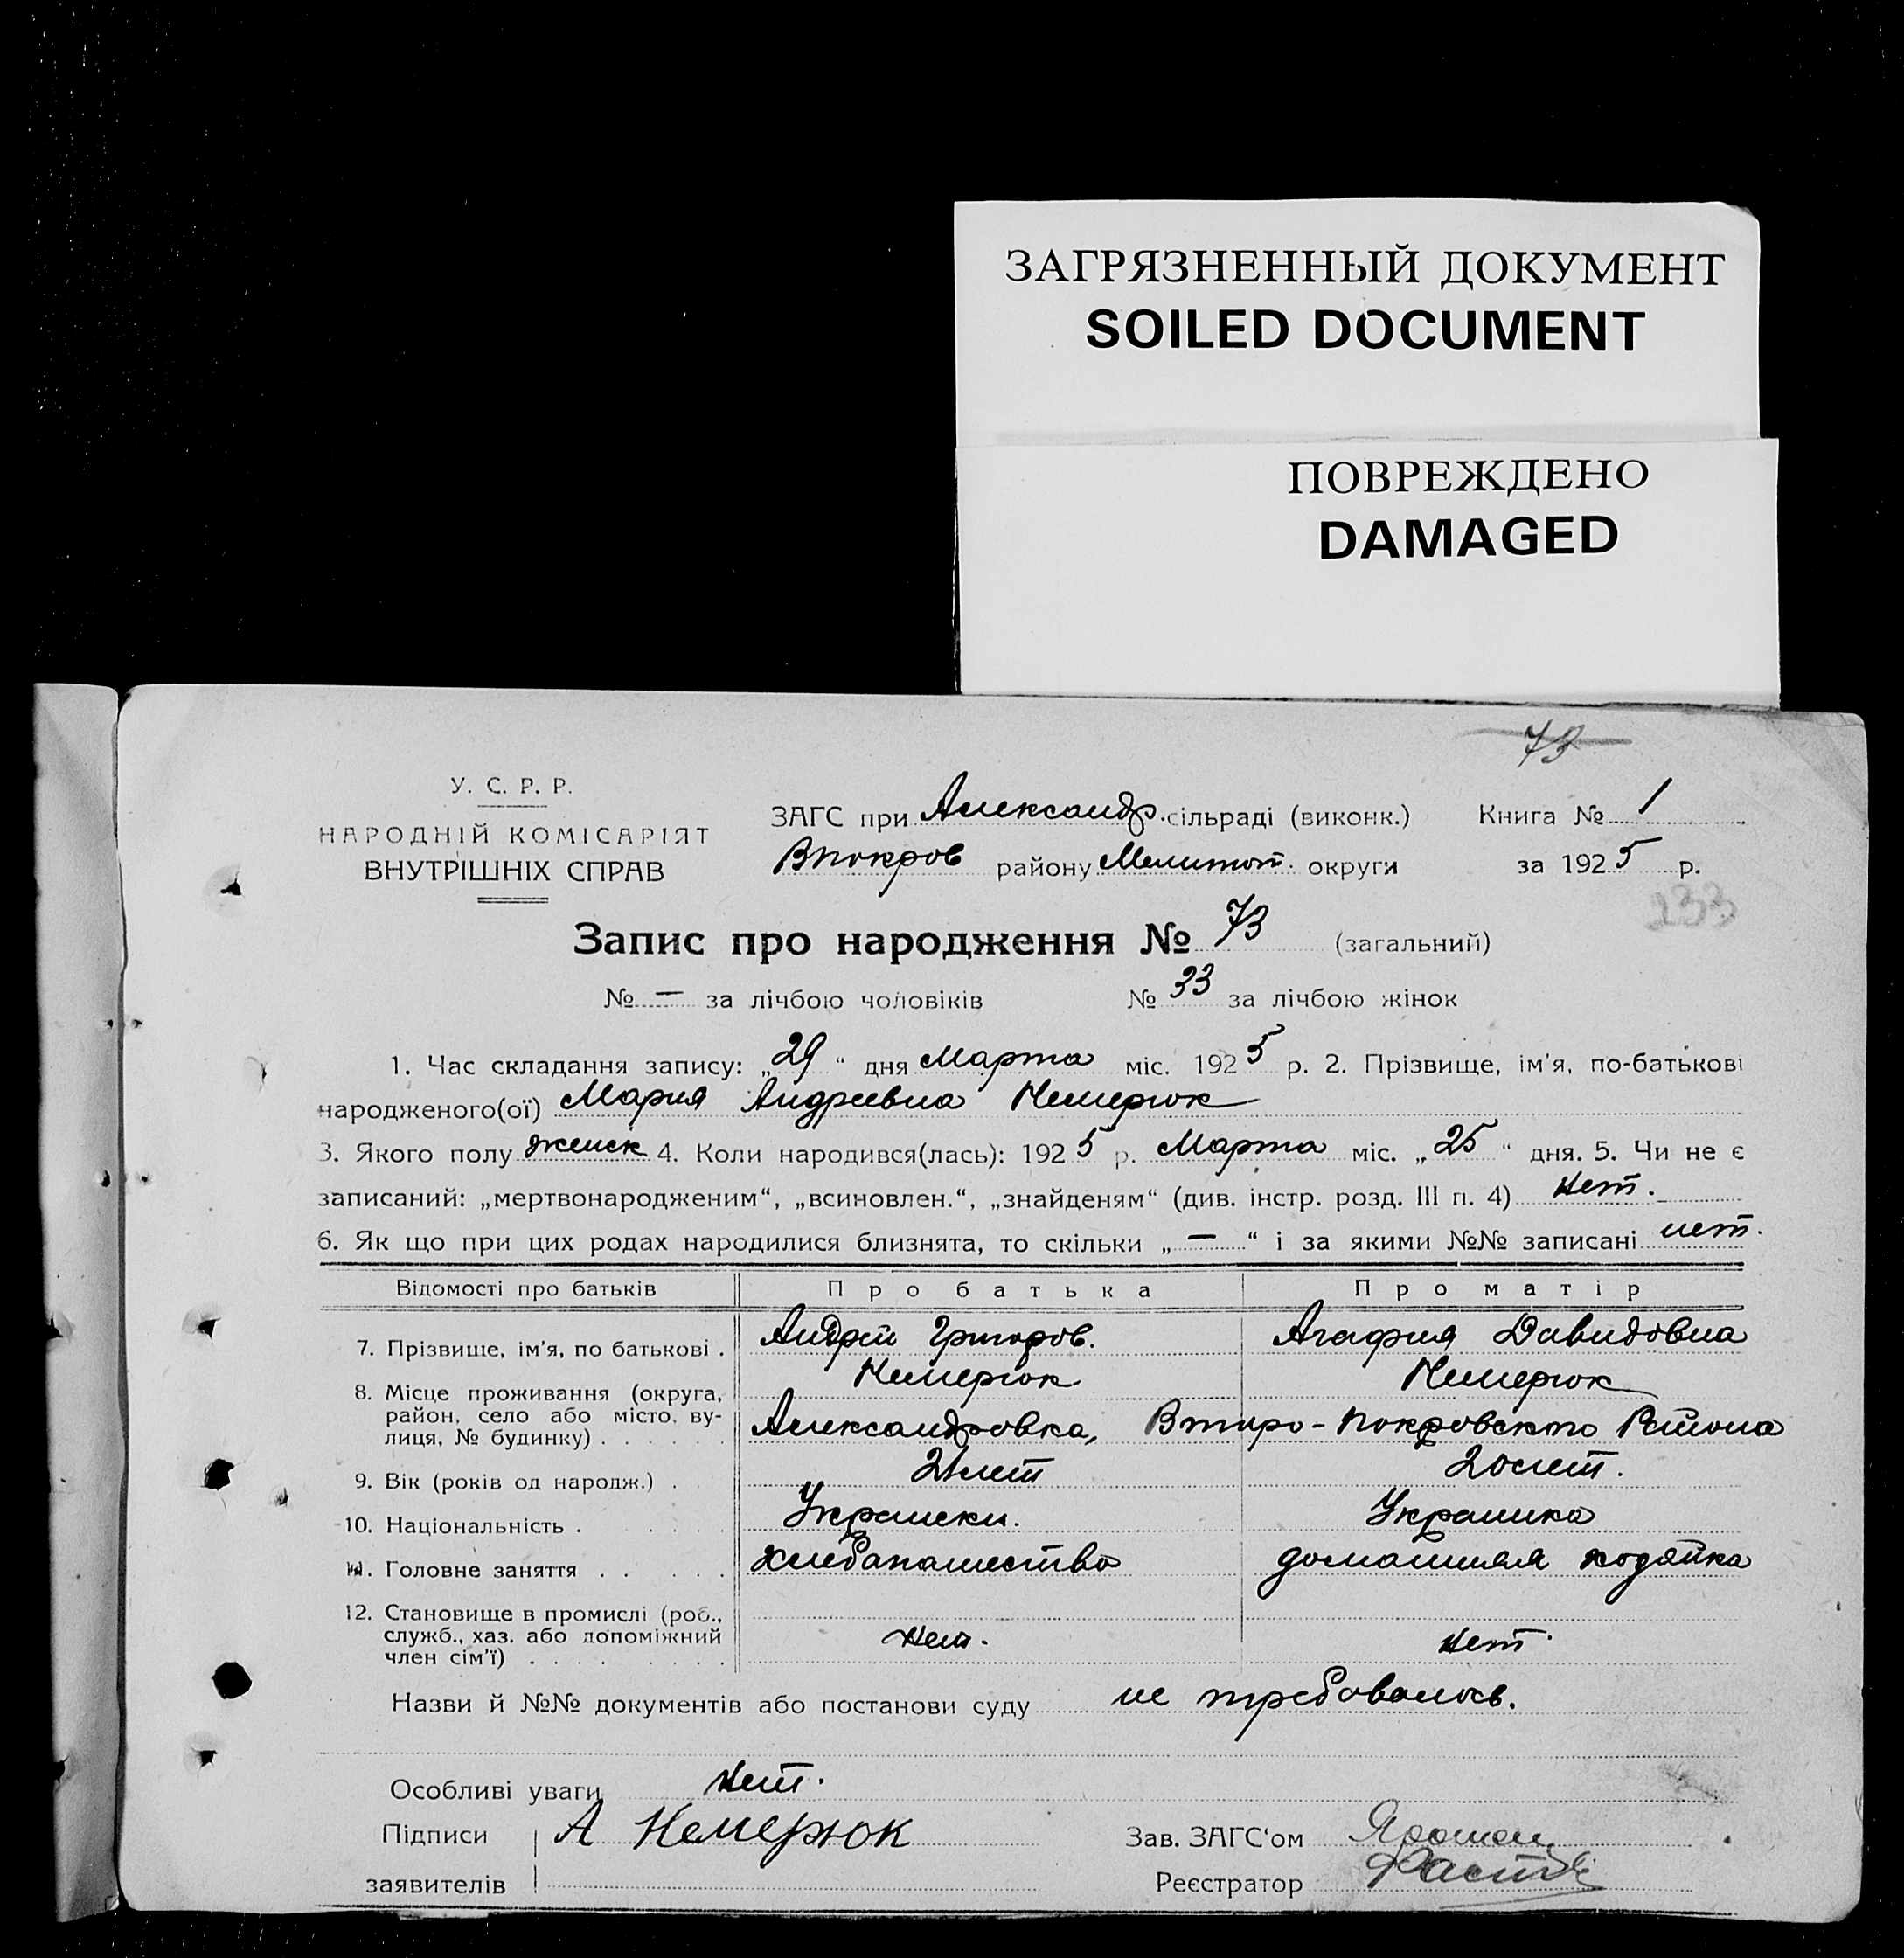 ЗАГРЯЗНЕННЫЙ ДОКУМЕНТ
SOILED DOCUMENT
ПОВРЕЖДЕНО
DAMAGED
73
У. С. Р. Р.
НАРОДНІЙ КОМІСАРІЯТ
ВНУТРІШНІХ СПРАВ
ЗАГС при Александр. сільраді (виконк.) Книга № 1
Впокров району Мелитоп. округи за 1925 р.
233
Запис про народження № 73 (загальний)
№ — за лічбою чоловіків № 33 за лічбою жінок
1. Час складання запису: „29“ дня Марта міс. 1925 р. 2. Прізвище, ім'я, по-батькові
народженого(ої) Мария Андреевна Немерюк
3. Якого полу женск 4. Коли народився(лась): 1925 р. Марта міс. „25“ дня. 5. Чи не є
записаний: „мертвонародженим“, „всиновлен.“, „знайденям“ (див. інстр. розд. III п. 4) Нет.
6. Як що при цих родах народилися близнята, то скільки „—“ і за якими №№ записані нет.
Відомості про батьків Про батька Про матір
7. Прізвище, ім'я, по батькові . Андрей Григоров. Агафия Давидовна
Немерюк Немерюк
8. Місце проживання (округа,
район, село або місто, ву-
лиця, № будинку) . . . . . . Александровка, Второ-Покровского Района
9. Вік (років од народж.) . 21 лет 20 лет.
10. Національність . . . . . Украински. Украинка
11. Головне заняття . . . . . хлебопашество домашняя хозяйка
12. Становище в промислі (роб.,
служб., хаз. або допоміжний
член сім'ї) . . . . . . . . Нет. Нет.
Назви й №№ документів або постанови суду не требовалось.
Особливі уваги Нет.
Підписи А Немерюк Зав. ЗАГС'ом
заявителів Реєстратор